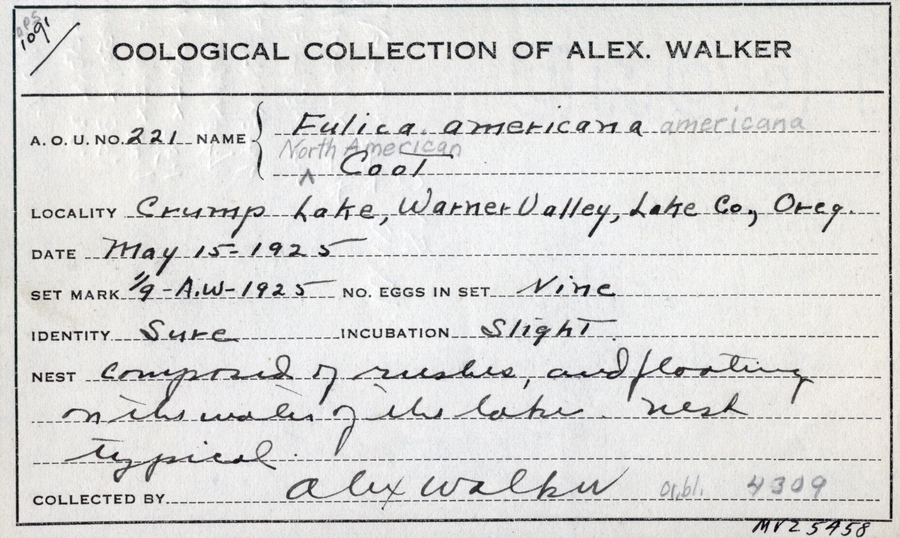 1091
OOLOGICAL COLLECTION OF ALEX. WALKER
A. O. U. NO. 221 NAME Fulica americana americana
North American
^ Coot
LOCALITY Crump Lake, Warner Valley, Lake Co., Oreg.
DATE May 15-1925
SET MARK 1/9-A.W-1925 NO. EGGS IN SET Nine
IDENTITY Sure INCUBATION Slight
NEST composed of rushes, and floating
on the water of the lake. Nest
typical.
COLLECTED BY Alex Walker 4309
MVZ 5458